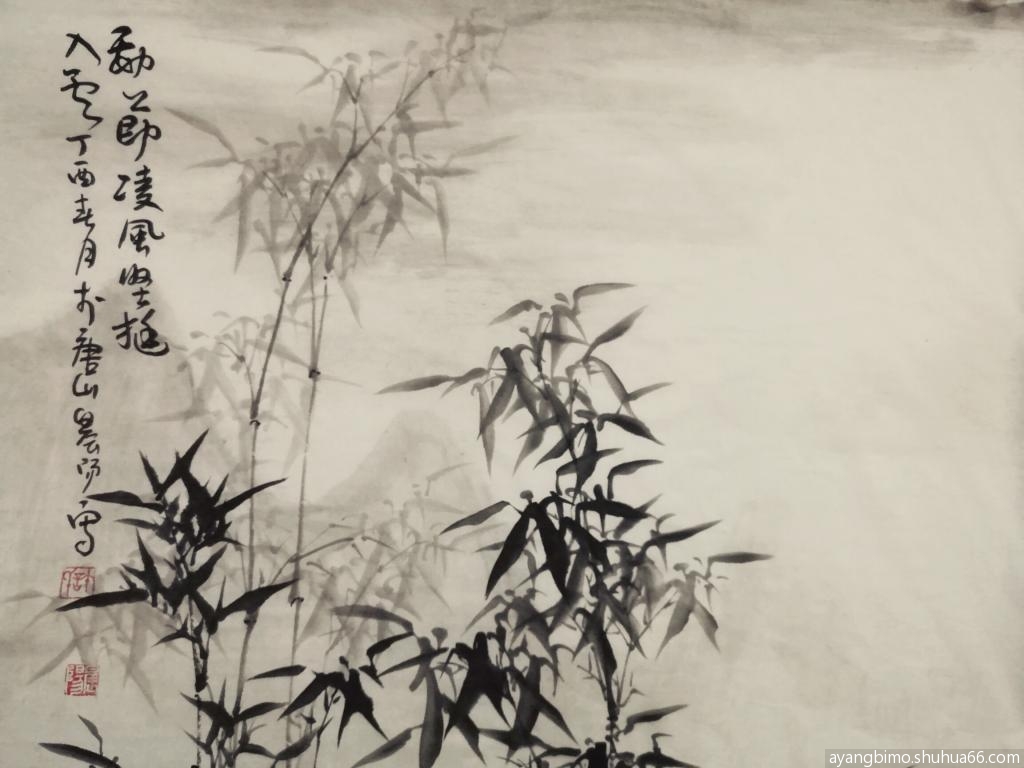 劲节凌風坚挺
入雲丁酉春月於唐山晨阳写
ayangbimo.shuhua66.com